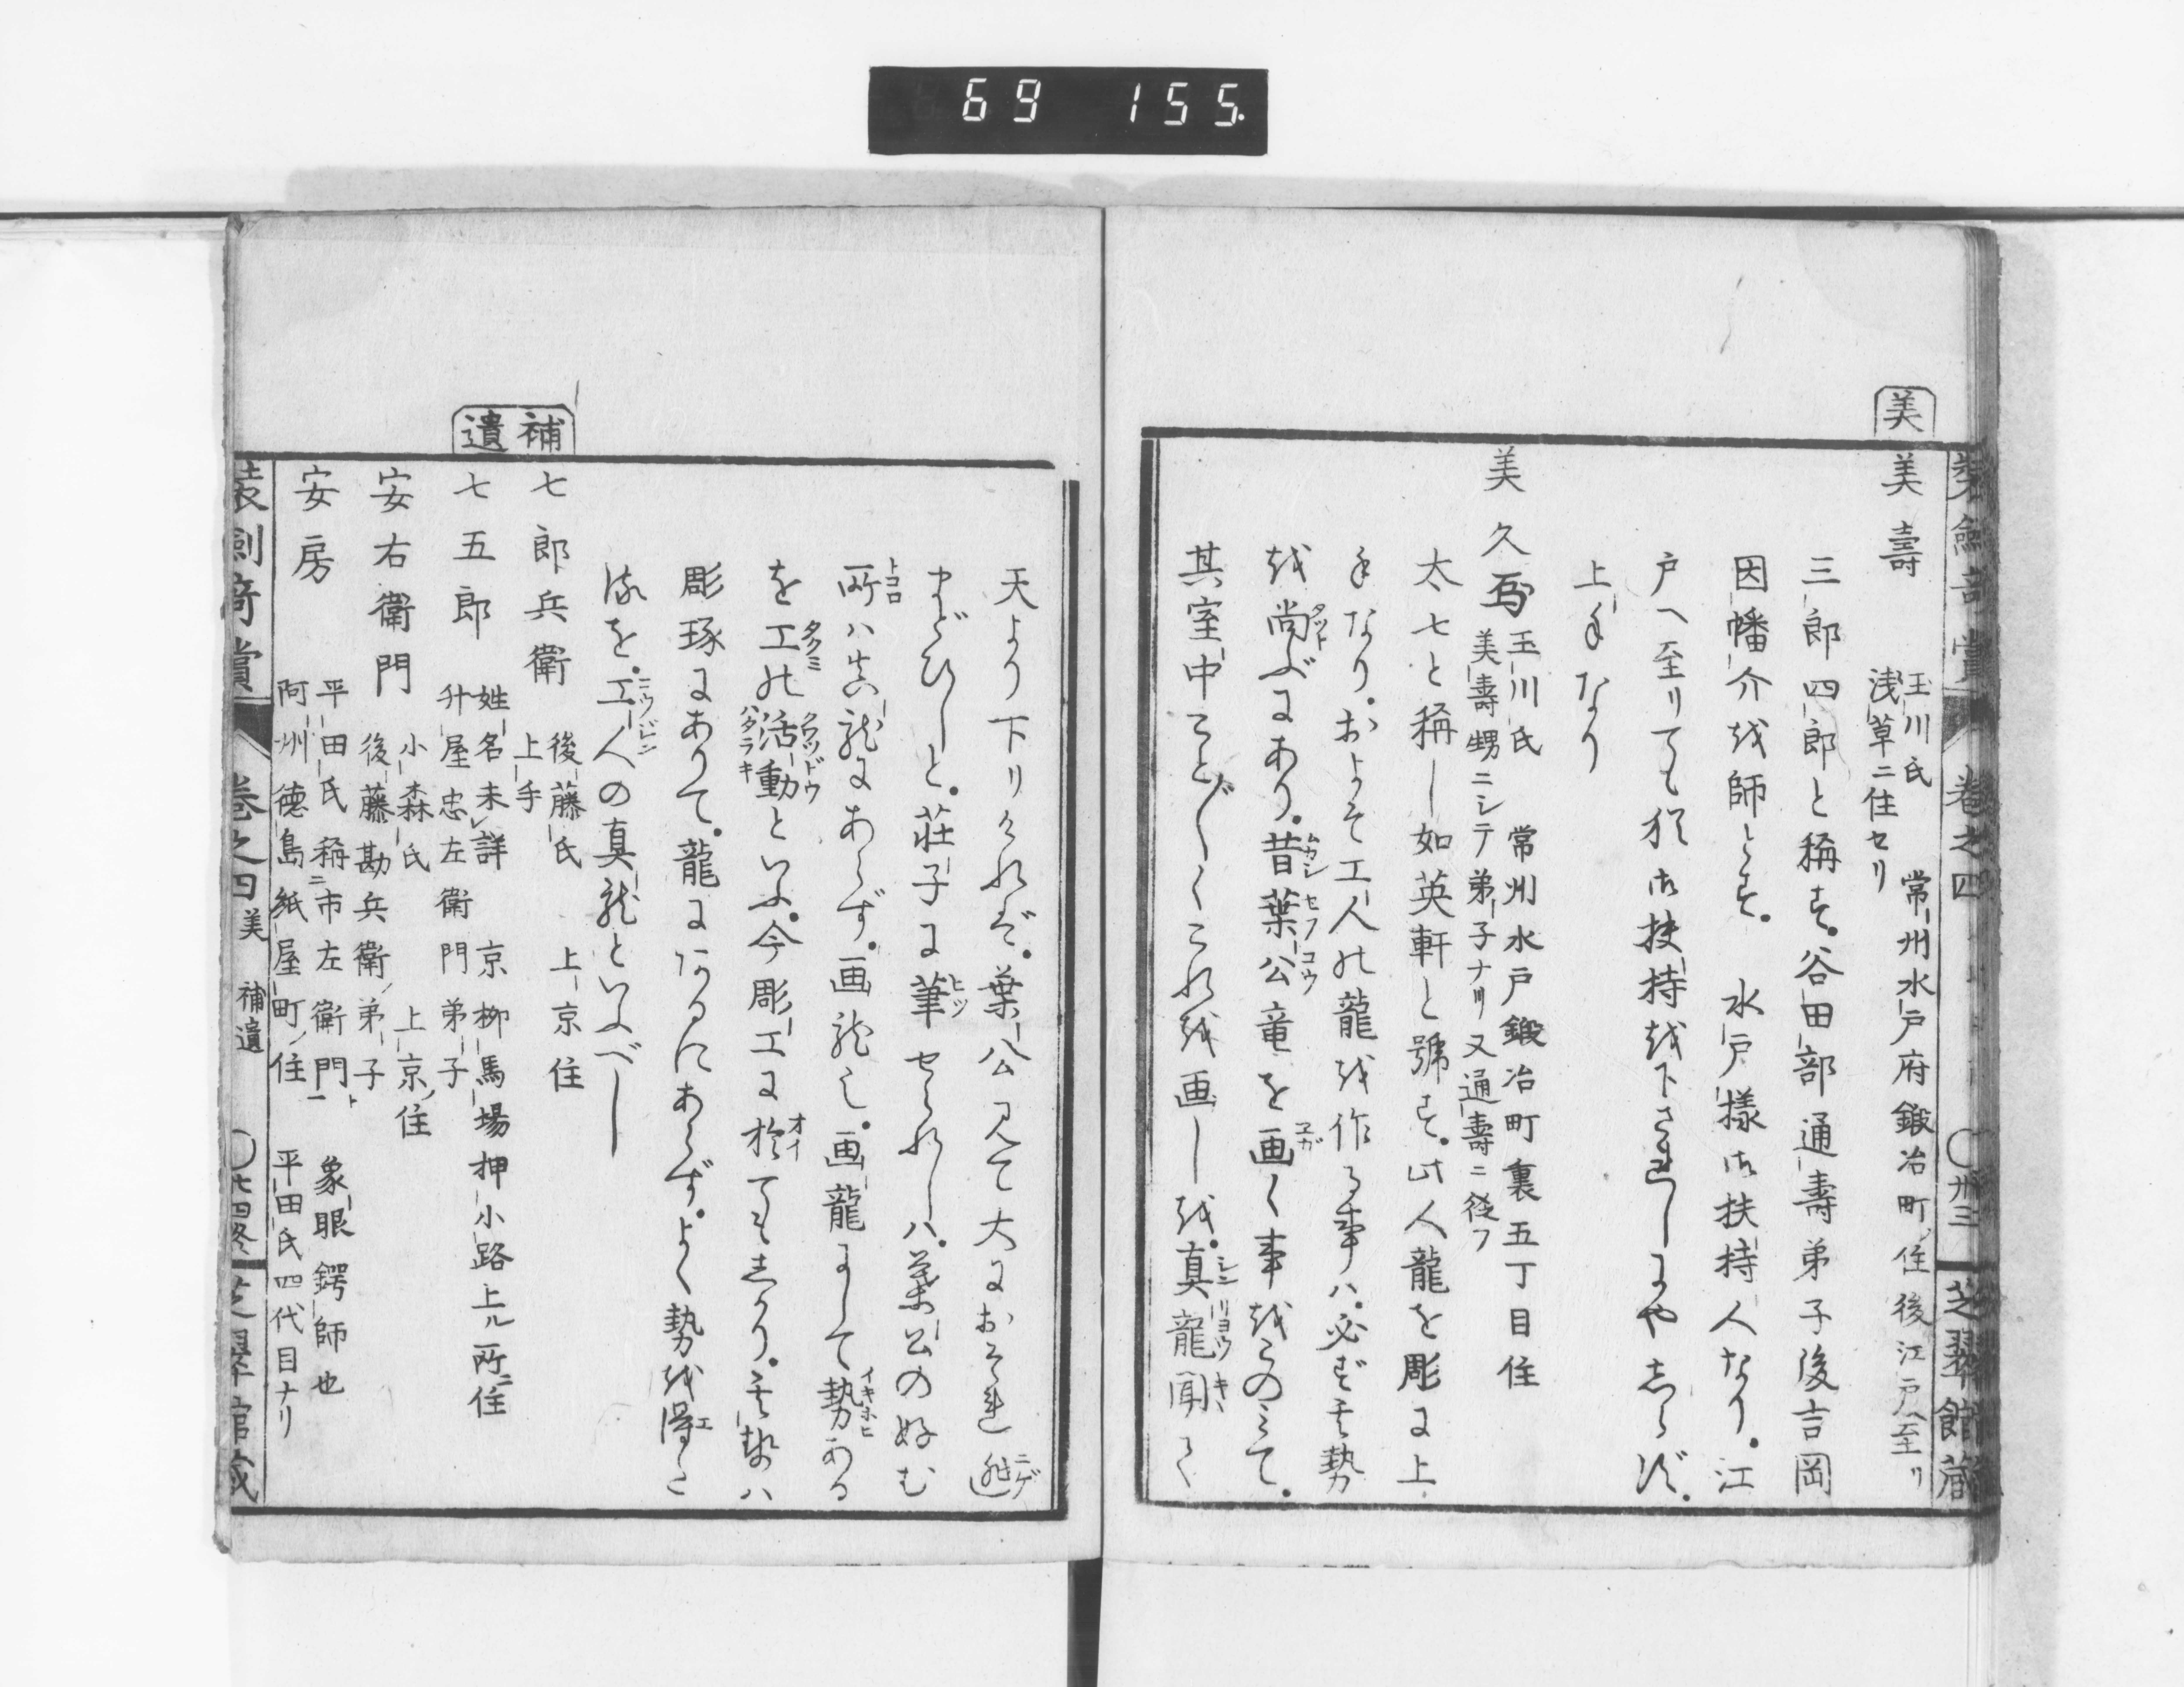 69 155.
装劔竒賞 巻之四 〇卅三 芝翠館藏
美
美壽 玉川氏 常州水戸府鍛冶町住後江戸ヘ至リ
浅草ニ住セリ
三郎四郎と称す。谷田部通壽弟子後吉岡
因幡介を師とす。水戸様御扶持人なり。江
戸へ至りても猶御扶持を下されしにやしらず。
上手なり
美久 玉川氏 常州水戸鍛冶町裏五丁目住
美壽甥ニシテ弟子ナリ又通壽ニ從フ
太七と稱し如英軒と號す。此人龍を彫に上
手なり。およそ工人の龍を作る事ハ。必ず其勢
を尚ぶにあり。昔葉公竜を画く事をこのミて。
其室中ことごとくこれを画しを。真龍聞て
天より下りけれバ。葉公見て大におそれ迯
まどひしと。荘子に筆せられしハ。葉公の好む
所ハ真龍にあらず。画龍也。画龍にして勢ある
を工の活動といふ。今彫工に於てもしかり。其勢ハ
彫琢にありて。龍にあるにあらず。よく勢を得る
を。工人の真龍といふべし
補遺
七郎兵衛 後藤氏 上京住
上手
七五郎 姓名未詳 京柳馬場押小路上ル所ニ住
升屋忠左衛門弟子
安右衛門 小森氏 上京ノ住
後藤勘兵衛ノ弟子
安房 平田氏稱ニ市左衛門ト一 象眼鍔師也
阿州徳島紙屋町ノ住 平田氏四代目ナリ
装劔竒賞 巻之四 美 補遺 芝翠館藏